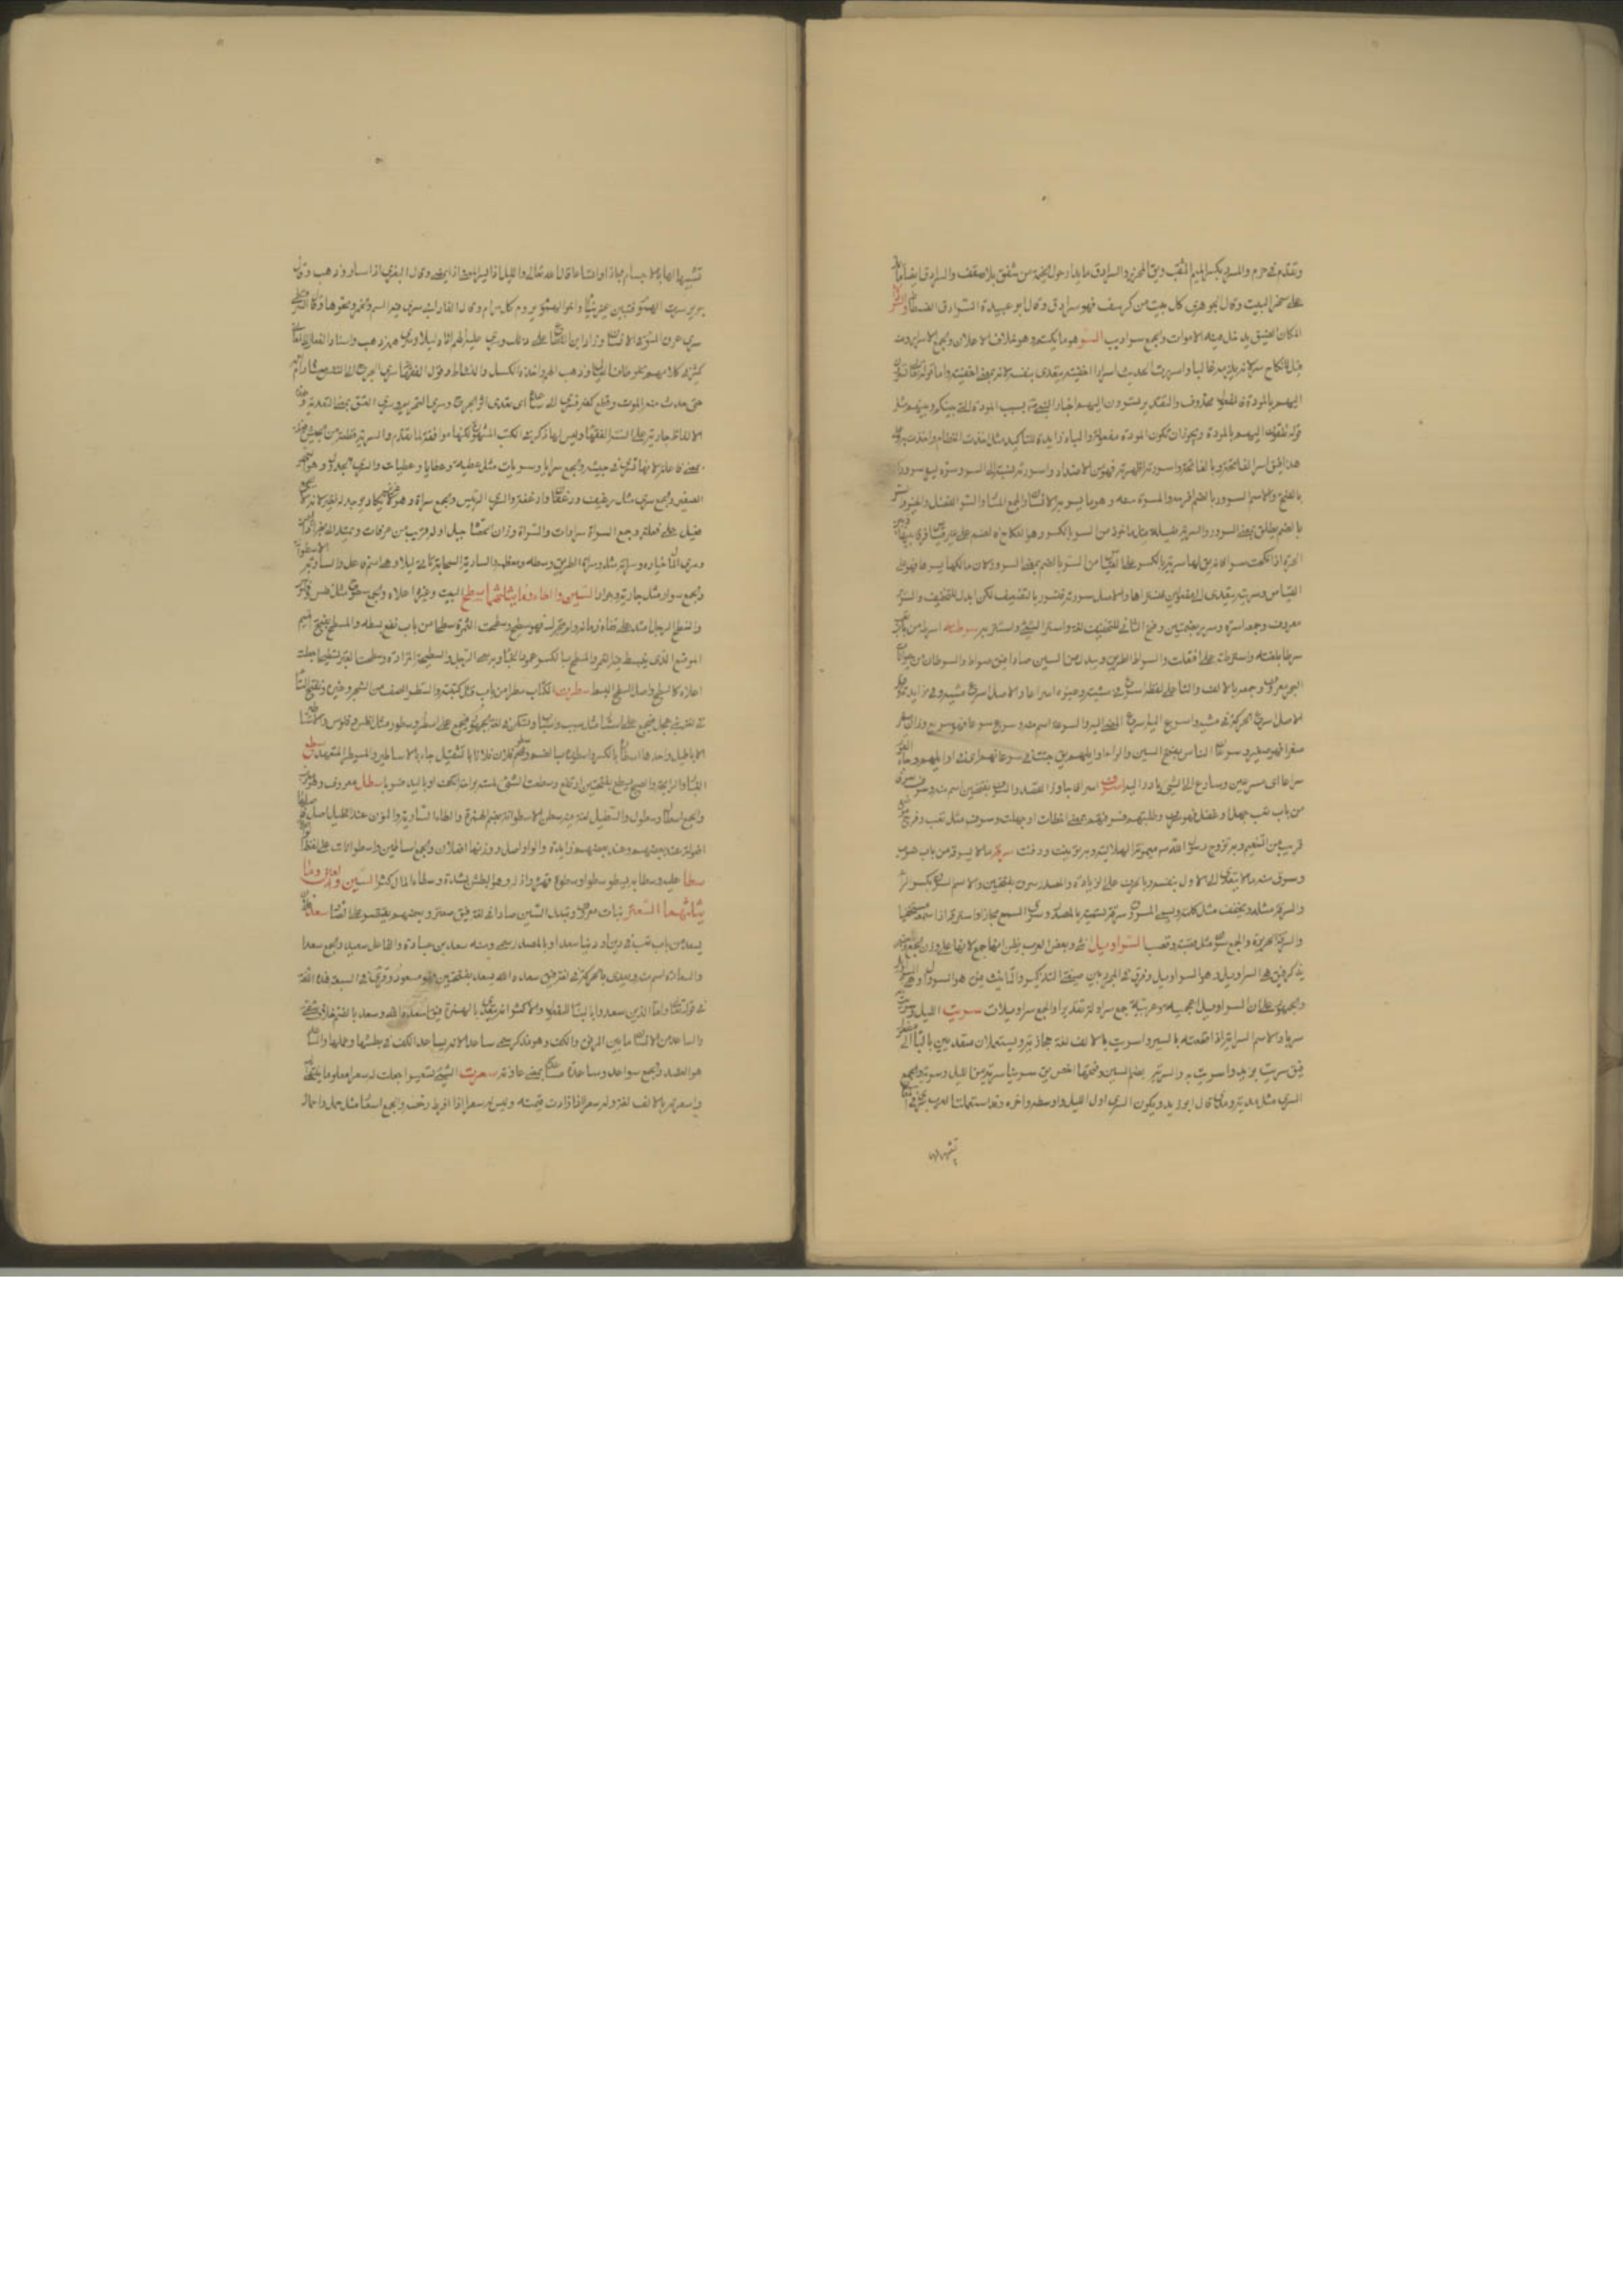 وتقدم في حرم والمسرد بكسر الميم المثقب ويق المخرز والسرادق ما يدار حول الخيمة من شقق بلا سقف والسرادق ايضا ما يمد
على صحن البيت وقال الجوهري كل بيت من كرسف فهو سرادق وقال ابو عبيدة السرادق الفسطاط والسرب
المكان الضيق يدخل فيه الاموات والجمع سراديب السر هو ما يكتم وهو خلاف الاعلان والجمع الاسرار ومنه
قيل للنكاح سر لانه يلزمه غالبا واسررت الحديث اسرارا اخفيته يتعدى بنفسه لانه بمعنى اخفيته واما قوله تعالى تسرون
اليهم بالمودة فالمفعول محذوف والتقدير تسرون اليهم اخبار النبي بسبب المودة التي بينكم وبينهم مثل
قوله تلقون اليهم بالمودة ويجوز ان تكون المودة مفعولة والباء زايدة للتاكيد مثل اخذت الخطام واخذت به وعلى
هذا فيق اسر الفاتحة وبالفاتحة واسررته اظهرته فهو من الاضداد واسررته نسبته الى السر وسره يسره سرورا
بالفتح والاسم السرور بالضم فرحه والمسرة منه وهو ما يسر به الانسان والجمع المسار والسر الفضل والخير
بالضم يطلق بمعنى السرور والسرية فعيلة قيل ماخوذ من السر بالكسر وهو النكاح فالضم على غير قياس فرقا بينها وبين
الحرة اذا نكحت سرا فانه يق لها سرية بالكسر على القياس وقيل من السر بالضم بمعنى السرور لان مالكها يسر بها فهو على
القياس وسريته سرية يتعدى الى مفعولين فتسراها والاصل سررته فتسرر بالتضعيف لكن ابدل للتخفيف والسرير
معروف وجمعه اسرة وسرر بضمتين وفتح الثاني للتخفيف لغة واستسر الشيء واستتر سرطته اسرطه من باب تعب
سرطا بلعته واسترطته على افتعلت والسراط الطريق ويبدل من السين صادا فيق صراط والسرطان من حيوان
البحر معروف وجمعه بالالف والتاء على لفظه اسرع في مشيته وغيره اسراعا والاصل اسرع مشيه وفي زايدة وقيل
الاصل اسرع الحركة في مشيه واسرع اليه اي اسرع المضي اليه والسرعة اسم منه وسرع سرعا فهو سريع وزان صغر
صغرا فهو صغير وسرعان الناس بفتح السين والراء اوايلهم يق جئت في سرعانهم اي في اوايلهم وجاء القوم
سراعا اي مسرعين وسارع الى الشيء بادر اليه اسرف اسرافا جاوز القصد والسرف بفتحتين اسم منه وسرف سرفا
من باب تعب جهل او غفل فهو سرف وطلبتهم فسرفتهم بمعنى اخطات او جهلت وسرف مثل تعب وفرح موضع
قريب من التنعيم وبه تزوج رسول الله ميمونة الهلالية وبه توفيت ودفنت سرقه مالا يسرقه من باب ضرب
وسرق منه مالا يتعدى الى الاول بنفسه وبالحرف على الزيادة والمصدر سرق بفتحتين والاسم السرق بكسر الراء
والسرقة مثله ويخفف مثل كلمة ويسمى المسروق سرقة تسمية بالمصدر وسرق السمع مجاز واسترقه اذا سمعه مستخفيا
والسرقة شقة حرير والجمع سرق مثل قصبة وقصب السراويل انثى وبعض العرب يظن انها جمع لانها على وزن الجمع وبعضهم
يذكر فيق هي السراويل وهو السراويل وفرق في المجرد بين صيغتي التذكير والتانيث فيق هو السراويل وهي السراويل
والجمهور على ان السراويل اعجمية وقيل عربية جمع سروالة تقديرا والجمع سراويلات سريت الليل وسريت به
سريا والاسم السراية اذا قطعته بالسير واسريت بالالف لغة حجازية ويستعملان متعديين بالباء الى مفعول
فيق سريت بزيد واسريت به والسرية بضم السين وفتحها اخص يق سرينا سرية من الليل وسرية والجمع
السرى مثل مدية ومدى قال ابو زيد ويكون السرى اول الليل واوسطه واخره وقد استعملت العرب سرى في المعاني
تشبيها
تشبيها لها بالاجسام مجازا واتساعا قال الله تعالى والليل اذا يسر المعنى اذا يمضي وقال البغوي اذا سار وذهب وقال
جرير سرت الهموم فبتن غير نيام واخو الهموم يروم كل مرام وقال الفارابي سرى فيه السم والخمر ونحوهما وقال السرقسطي
سرى عرق السوء في الانسان وزاد ابن القطاع على ذلك وسرى عليه الهم اتاه ليلا وسرى همه ذهب واسناد الفعل الى المعاني
كثير في كلامهم نحو طاف الخيال وذهب الهم واخذه الكسل والنشاط وقول الفقهاء سرى الجرح الى النفس معناه دام المه
حتى حدث منه الموت وقطع كفه فسرى الى ساعده اي تعدى اثر الجرح وسرى التحريم وسرى العتق بمعنى التعدية وهذه
الالفاظ جارية على السنة الفقهاء وليس لها ذكر في الكتب المشهورة لكنها موافقة لما تقدم والسرية قطعة من الجيش فعيلة
بمعنى فاعلة لانها تسري في خفية والجمع سرايا وسريات مثل عطية وعطايا وعطيات والسري الجدول وهو النهر
الصغير والجمع سريان مثل رغيف ورغفان والسري الرئيس والجمع سراة وهو جمع عزيز لا يكاد يوجد له نظير لانه لا يجمع
فعيل على فعلة وجمع السراة سراوات والسراة وزان الحصاة جبل اوله قريب من عرفات ويمتد الى نجران اليمن
وسرى المال خياره وسراة مثله وسراة الطريق وسطه ومعظمه والسارية السحابة تاتي ليلا وهي اسم فاعل والسارية الاسطوانة
والجمع سوار مثل جارية وجوار السين والطاء وما يثلثهما سطح البيت وغيره اعلاه والجمع سطوح مثل فلس وفلوس
وانسطح الرجل امتد على قفاه زمانة ولم يتحرك فهو سطيح وسطحت التمرة سطحا من باب نفع بسطته والمسطح بفتح الميم
الموضع الذي يبسط فيه التمر والمسطح بالكسر عمود الخباء وبه سمي الرجل والسطيحة المزادة وسطحت القبر تسطيحا جعلت
اعلاه كالسطح واصل السطح البسط سطرت الكتاب سطرا من باب قتل كتبته والسطر الصف من الشجر وغيره وتفتح الطاء
في لغة بني عجل فيجمع على اسطار مثل سبب واسباب ويسكن في لغة الجمهور فيجمع على اسطر وسطور مثل افلس وفلوس والاساطير
الاباطيل واحدها اسطارة بالكسر واسطورة بالضم وسطر فلان فلانا بالتثقيل جاءه بالاساطير والمسيطر المتعهد سطع
الغبار والرائحة والصبح يسطع بفتحتين ارتفع وسطعت الشيء لمسته براحة الكف او باليد ضربا سطل معروف وهو معرب
والجمع اسطال وسطول والسيطل لغة فيه سطن الاسطوانة بضم الهمزة والطاء السارية والنون عند الخليل اصل فوزنها
افعوالة عند بعضهم وعند بعضهم زايدة والواو اصل ووزنها افعلانة والجمع اساطين واسطوانات على لفظ الواحدة
سطا عليه وسطا به يسطو سطوا وسطوة قهره واذله وهو البطش بشدة وسطا الماء كثر السين والعين وما
يثلثهما السعتر نبات معروف وتبدل السين صادا في لغة فيق صعتر وبعضهم يقتصر على الصاد سعد فلان
يسعد من باب تعب في دين او دنيا سعدا وبالمصدر سمي ومنه سعد بن عبادة والفاعل سعيد والجمع سعدا
والسعادة اسم منه ويعدى بالحركة في لغة فيق سعده الله يسعده بفتحتين فهو مسعود وقرئ في السبعة بهذه اللغة
في قوله تعالى واما الذين سعدوا بالبناء للمفعول والاكثر ان يتعدى بالهمزة فيق اسعده الله وسعد بالضم خلاف شقي
والساعد من الانسان ما بين المرفق والكف وهو مذكر سمي ساعدا لانه يساعد الكف في بطشها وعملها والساعد
هو العضد والجمع سواعد وساعده مساعدة بمعنى عاونه سعرت الشيء تسعيرا جعلت له سعرا معلوما ينتهي اليه
واسعرته بالالف لغة وله سعر اذا زادت قيمته وليس له سعر اذا افرط رخصه والجمع اسعار مثل حمل واحمال